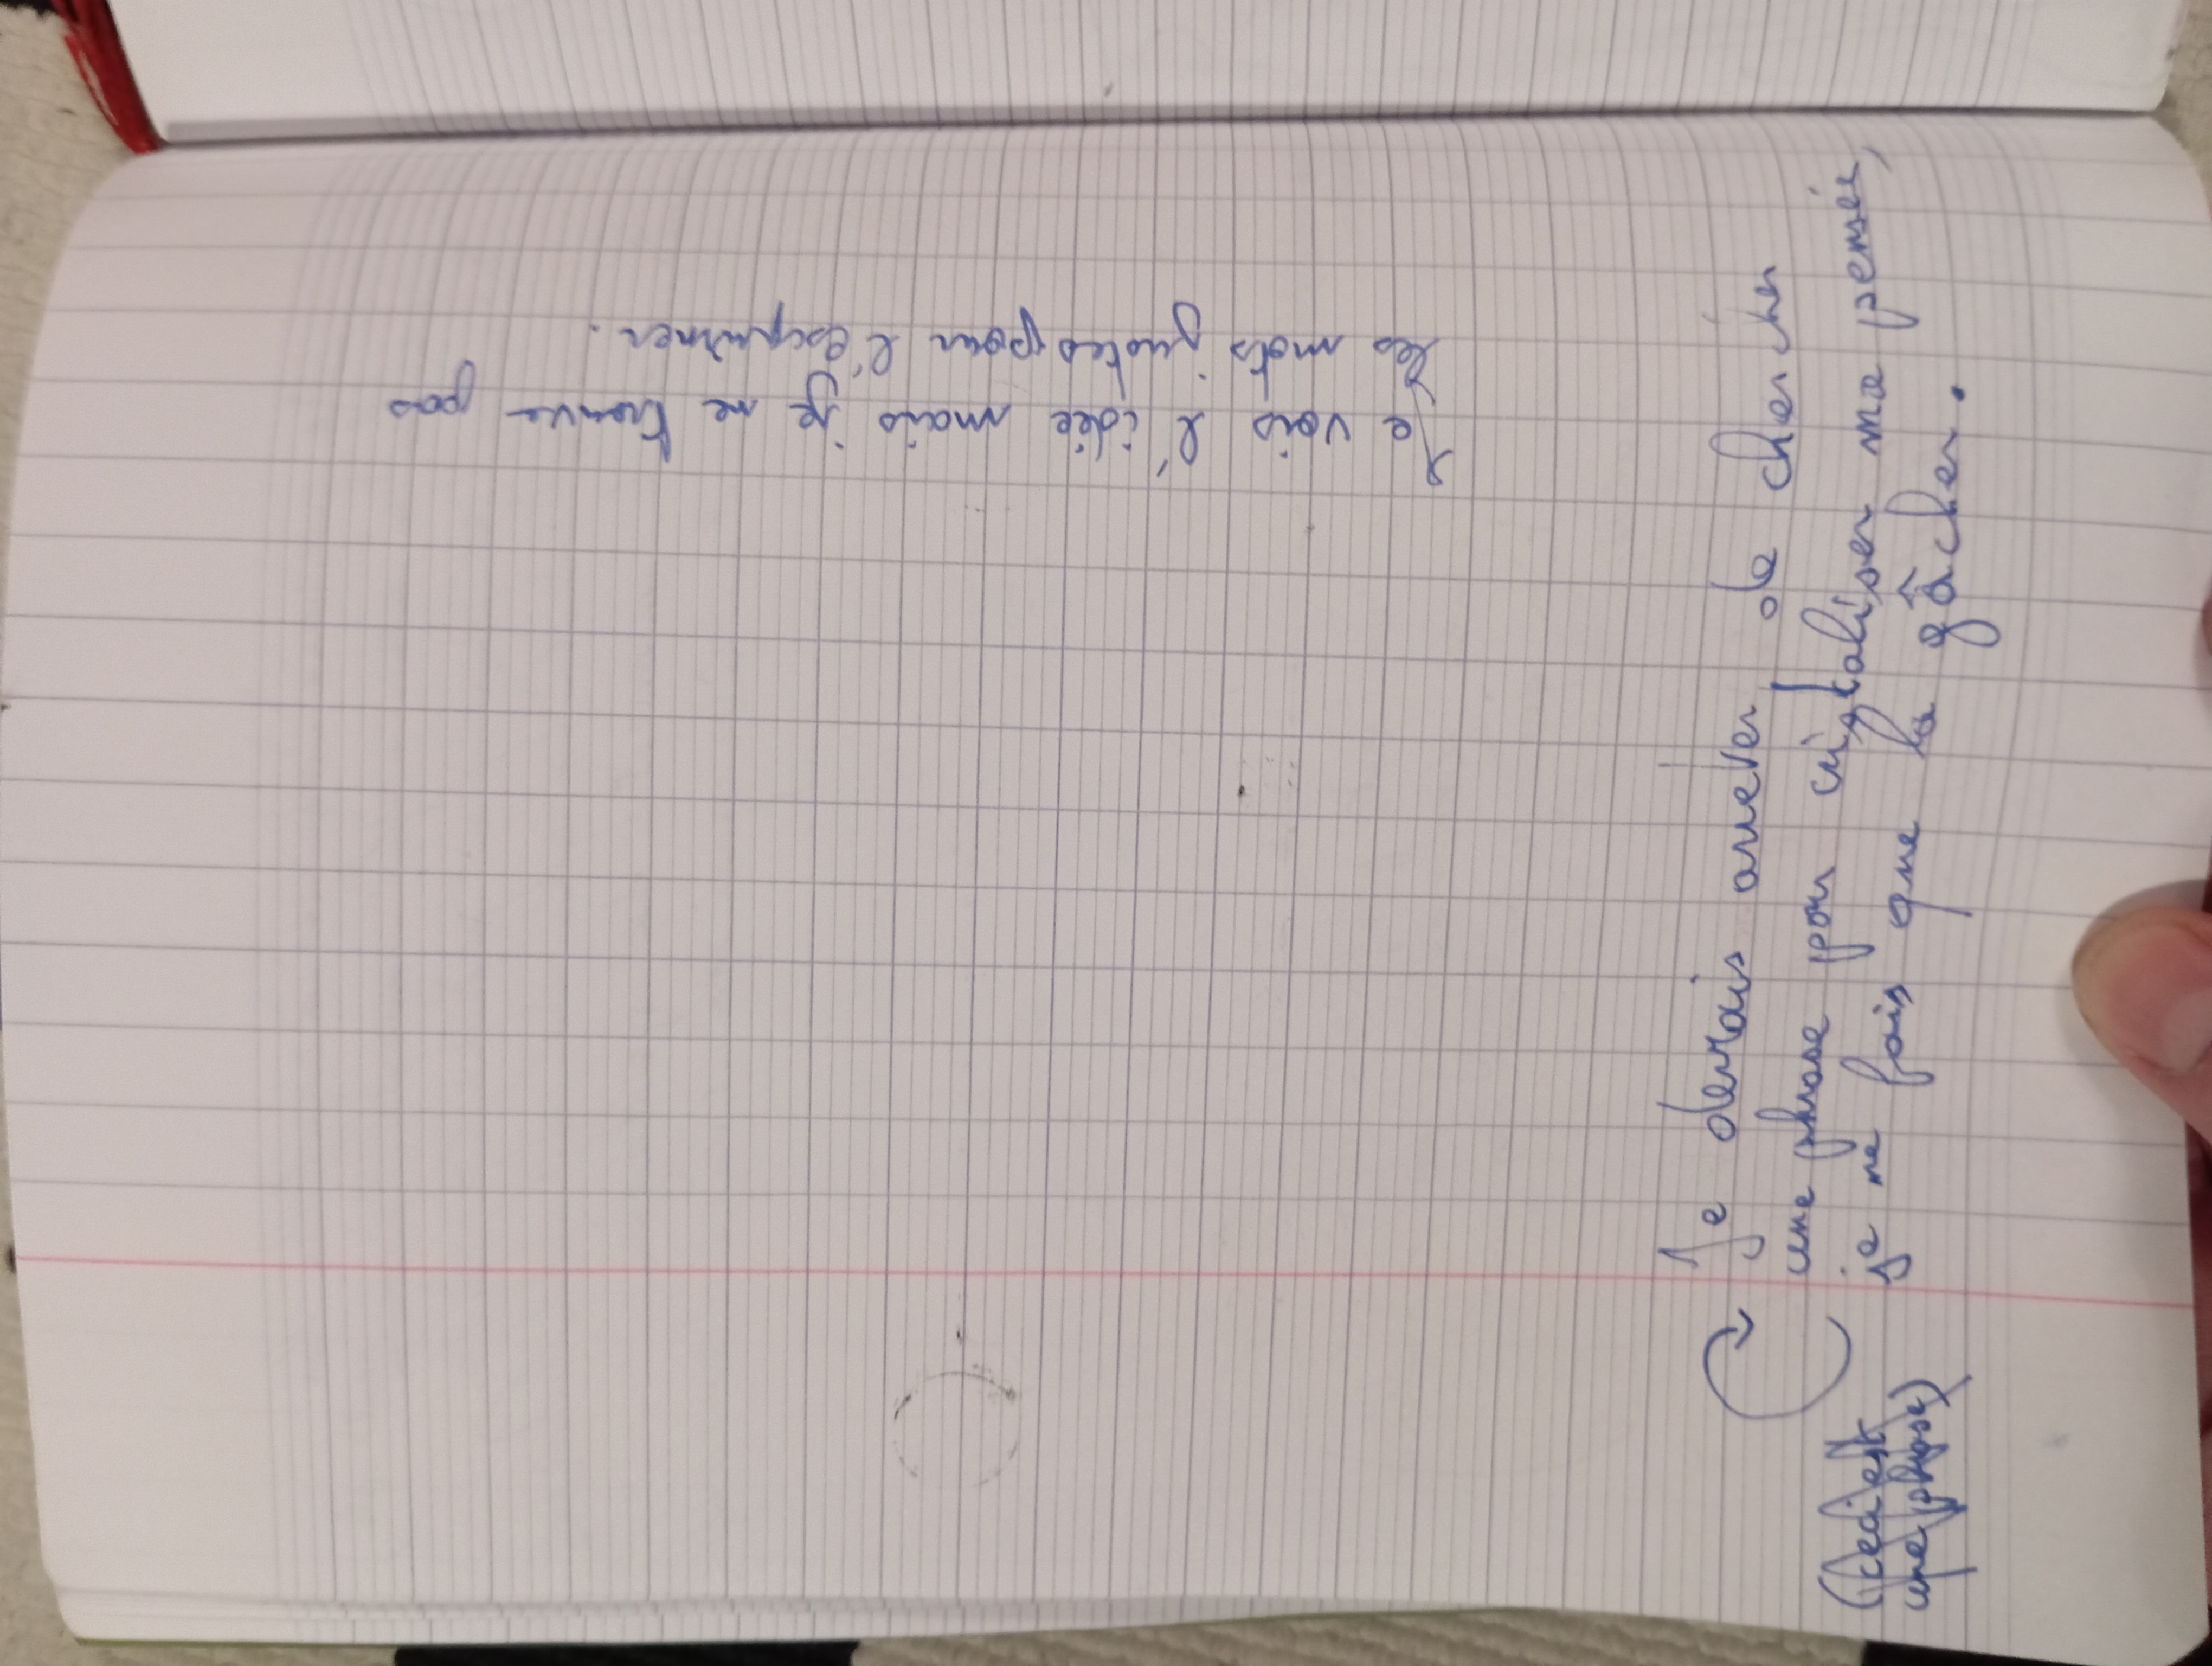 Je vois l'idée mais je ne trouve pas
les mots justes pour l'exprimer.
Je devrais arrêter, de chercher
une phrase pour cristaliser ma pensée,
je ne fais que la gâcher.
(ceci est
une phrase)